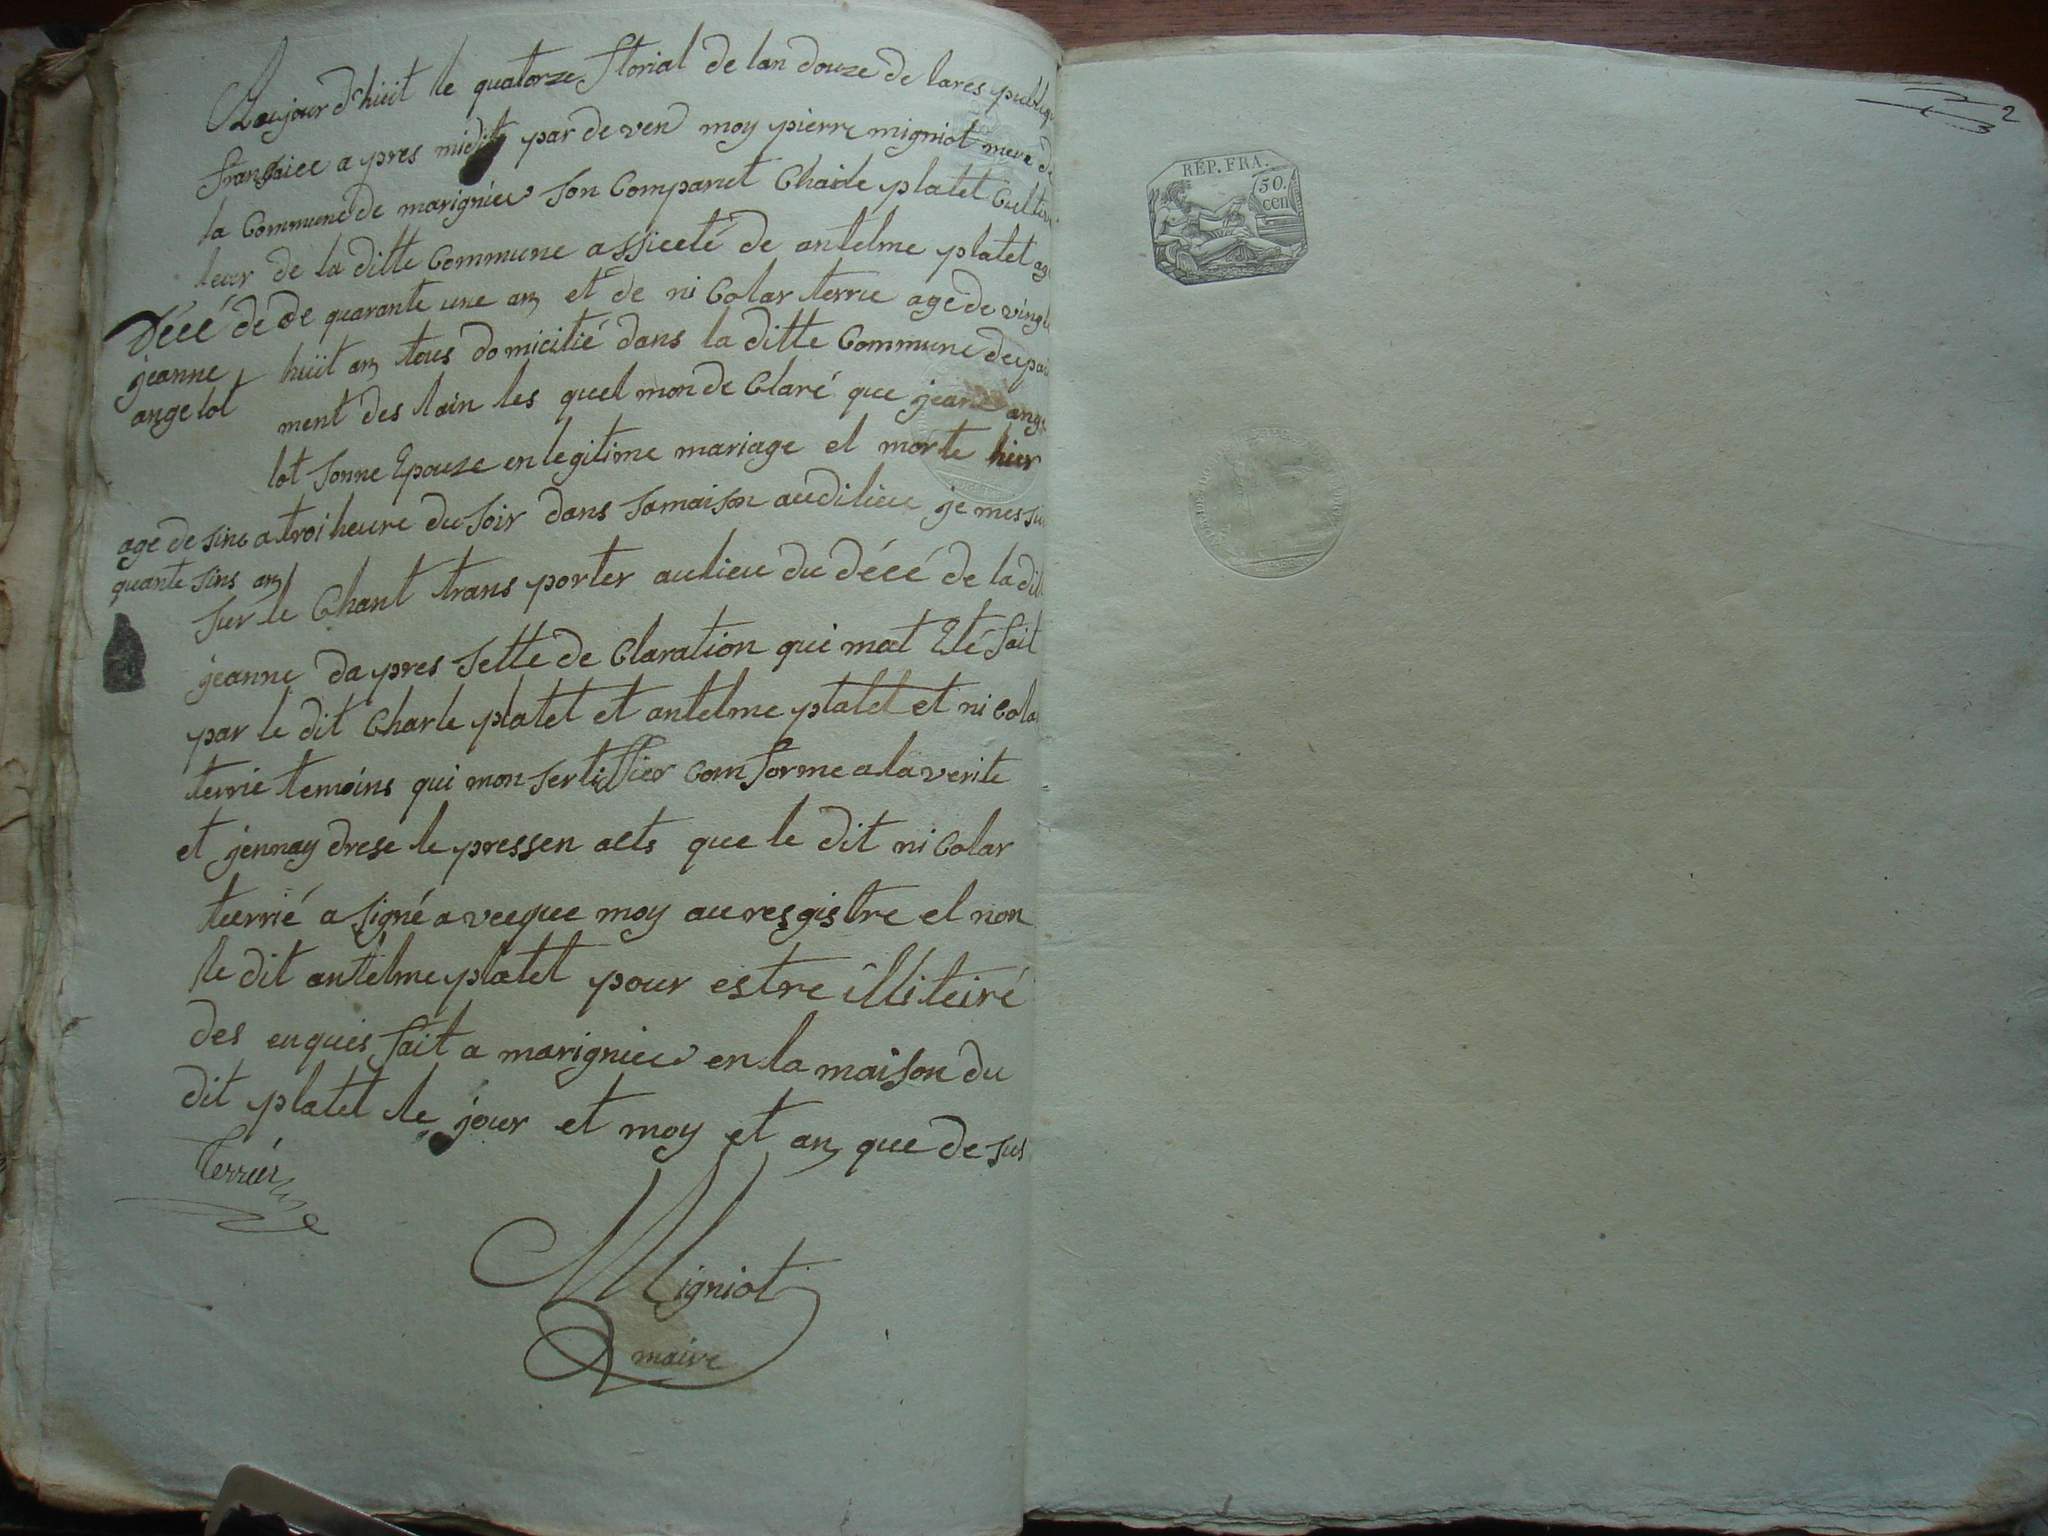 Aoujour d'huit le quatorze florial de lan douze de lares publiq
franxaiee a pres midit par de ven moy pierre migniot mere de
la Commune de marignieu Son Comparuet Charle platet Cultiva
teur de la ditte Commune assiceté de antelme platet ag
Décé de de quarante une an et de ni Colar terrie age de vingt
jeanne
angelot
huit an tous domicilié dans la ditte Commune depar
ment des lain les quel mon de Claré que jeane ange
lot Sonne Epouze en legitime mariage et morte hier
age de sinc
quante sins an
a troi heure du soir dans samaison audilieu je mes sui
sur le Chant trans porter aulieu du décé de la dit
jeanne da pres sette de Claration qui mat Eté fait
par le dit Charle platet et antelme platet et ni Cola
terrie temoins qui mon sertiffier Com forme a la verite
et jennay drese le pressen acts que le dit ni Colar
terrié a signé a vecque moy au resgistre et non
le dit antelme platet pour estre illiteiré
des enquis fait a marignieu en la maison du
dit platet le jour et moy et an que de sus
terrier
Migniot
maire
2
REP. FRA.
50.
cen